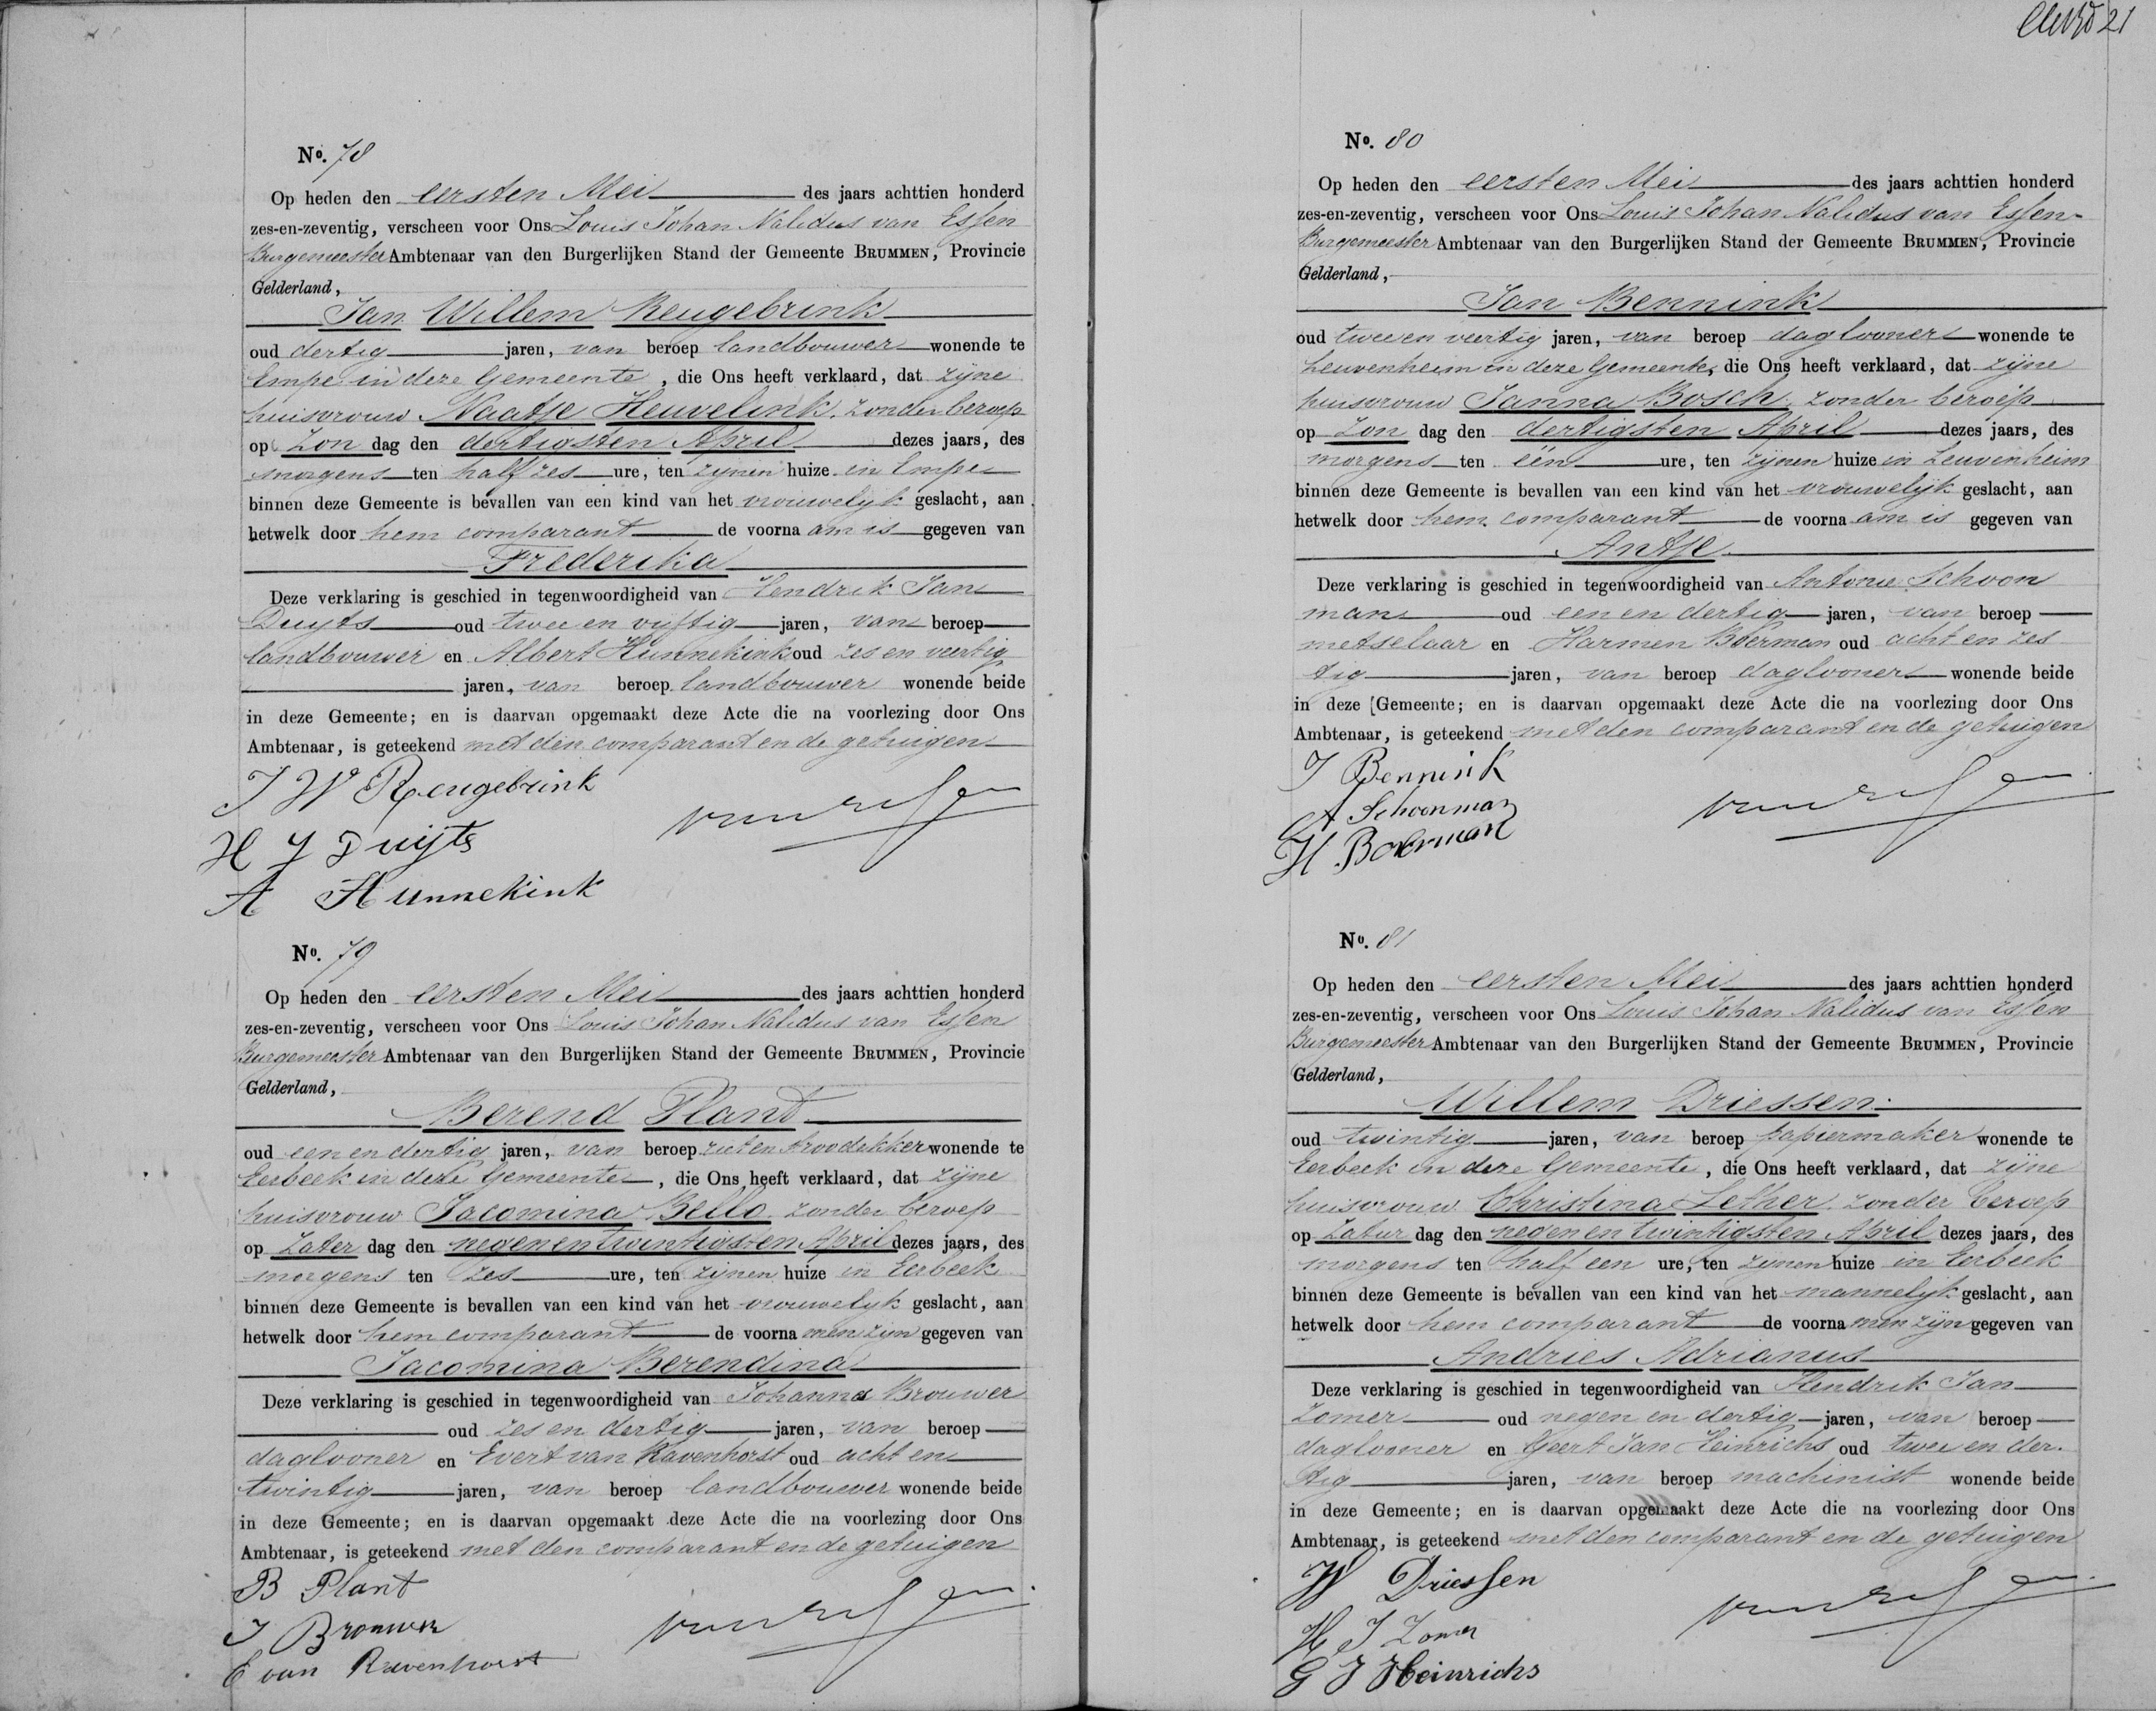 21
No. 78
Op heden den eersten Mei des jaars achttien honderd
zes-en-zeventig, verscheen voor Ons Louis Johan Nalidus van Essen
Burgemeester Ambtenaar van den Burgerlijken Stand der Gemeente BRUMMEN, Provincie
Gelderland,
Jan Willem Reugebrink
oud dertig jaren, van beroep landbouwer wonende te
Empe in deze Gemeente, die Ons heeft verklaard, dat zijne
huisvrouw Naatje Heuvelink, zonder beroep
op Zon dag den dertigsten April dezes jaars, des
morgens ten half zes ure, ten zijnen huize in Empe
binnen deze Gemeente is bevallen van een kind van het vrouwelijk geslacht, aan
hetwelk door hem comparant de voorna am is gegeven van
Frederika
Deze verklaring is geschied in tegenwoordigheid van Hendrik Jan
Duyts oud twee en vijftig jaren, van beroep
landbouwer en Albert Hunnekink oud zes en veertig
jaren, van beroep landbouwer wonende beide
in deze Gemeente; en is daarvan opgemaakt deze Acte die na voorlezing door Ons
Ambtenaar, is geteekend met den comparant en de getuigen
J W Reugebrink
van Essen
H J Duijts
A Hunnekink
No. 79
Op heden den eersten Mei des jaars achttien honderd
zes-en-zeventig, verscheen voor Ons Louis Johan Nalidus van Essen
Burgemeester Ambtenaar van den Burgerlijken Stand der Gemeente BRUMMEN, Provincie
Gelderland,
Berend Plant
oud een en dertig jaren, van beroep riet en stroodekker wonende te
Eerbeek in deze Gemeente, die Ons heeft verklaard, dat zijne
huisvrouw Jacomina Bello, zonder beroep
op Zater dag den negen en twintigsten April dezes jaars, des
morgens ten zes ure, ten zijnen huize in Eerbeek
binnen deze Gemeente is bevallen van een kind van het vrouwelijk geslacht, aan
hetwelk door hem comparant de voorna men zijn gegeven van
Jacomina Berendina
Deze verklaring is geschied in tegenwoordigheid van Johannes Brouwer
oud zes en dertig jaren, van beroep
daglooner en Evert van Ravenhorst oud acht en
twintig jaren, van beroep landbouwer wonende beide
in deze Gemeente; en is daarvan opgemaakt deze Acte die na voorlezing door Ons
Ambtenaar, is geteekend met den comparant en de getuigen
B Plant
J Brouwer
van Essen
E van Ravenhorst
No. 80
Op heden den eersten Mei des jaars achttien honderd
zes-en-zeventig, verscheen voor Ons Louis Johan Nalidus van Essen
Burgemeester Ambtenaar van den Burgerlijken Stand der Gemeente BRUMMEN, Provincie
Gelderland,
Jan Bennink
oud twee en veertig jaren, van beroep daglooner wonende te
Leuvenheim in deze Gemeente, die Ons heeft verklaard, dat zijne
huisvrouw Janna Bosch, zonder beroep
op Zon dag den dertigsten April dezes jaars, des
morgens ten één ure, ten zijnen huize in Leuvenheim
binnen deze Gemeente is bevallen van een kind van het vrouwelijk geslacht, aan
hetwelk door hem comparant de voorna am is gegeven van
Antje
Deze verklaring is geschied in tegenwoordigheid van Antonie Schoon
man oud een en dertig jaren, van beroep
metselaar en Harmen Boerman oud acht en zes
tig jaren, van beroep daglooner wonende beide
in deze [Gemeente; en is daarvan opgemaakt deze Acte die na voorlezing door Ons
Ambtenaar, is geteekend met den comparant en de getuigen
J Bennink
A Schoonman
van Essen
H Boerman
No. 81
Op heden den eersten Mei des jaars achttien honderd
zes-en-zeventig, verscheen voor Ons Louis Johan Nalidus van Essen
Burgemeester Ambtenaar van den Burgerlijken Stand der Gemeente BRUMMEN, Provincie
Gelderland,
Willem Driessen
oud twintig jaren, van beroep papiermaker wonende te
Eerbeek in deze Gemeente, die Ons heeft verklaard, dat zijne
huisvrouw Christina Lether, zonder beroep
op Zatur dag den negen en twintigsten April dezes jaars, des
morgens ten half een ure, ten zijnen huize in Eerbeek
binnen deze Gemeente is bevallen van een kind van het mannelijk geslacht, aan
hetwelk door hem comparant de voorna men zijn gegeven van
Andries Adrianus
Deze verklaring is geschied in tegenwoordigheid van Hendrik Jan
Zomer oud negen en dertig jaren, van beroep
daglooner en Geert Jan Heinrichs oud twee en der
tig jaren, van beroep machinist wonende beide
in deze Gemeente; en is daarvan opgemaakt deze Acte die na voorlezing door Ons
Ambtenaar, is geteekend met den comparant en de getuigen
W Driessen
van Essen
H J Zomer
G J Heinrichs